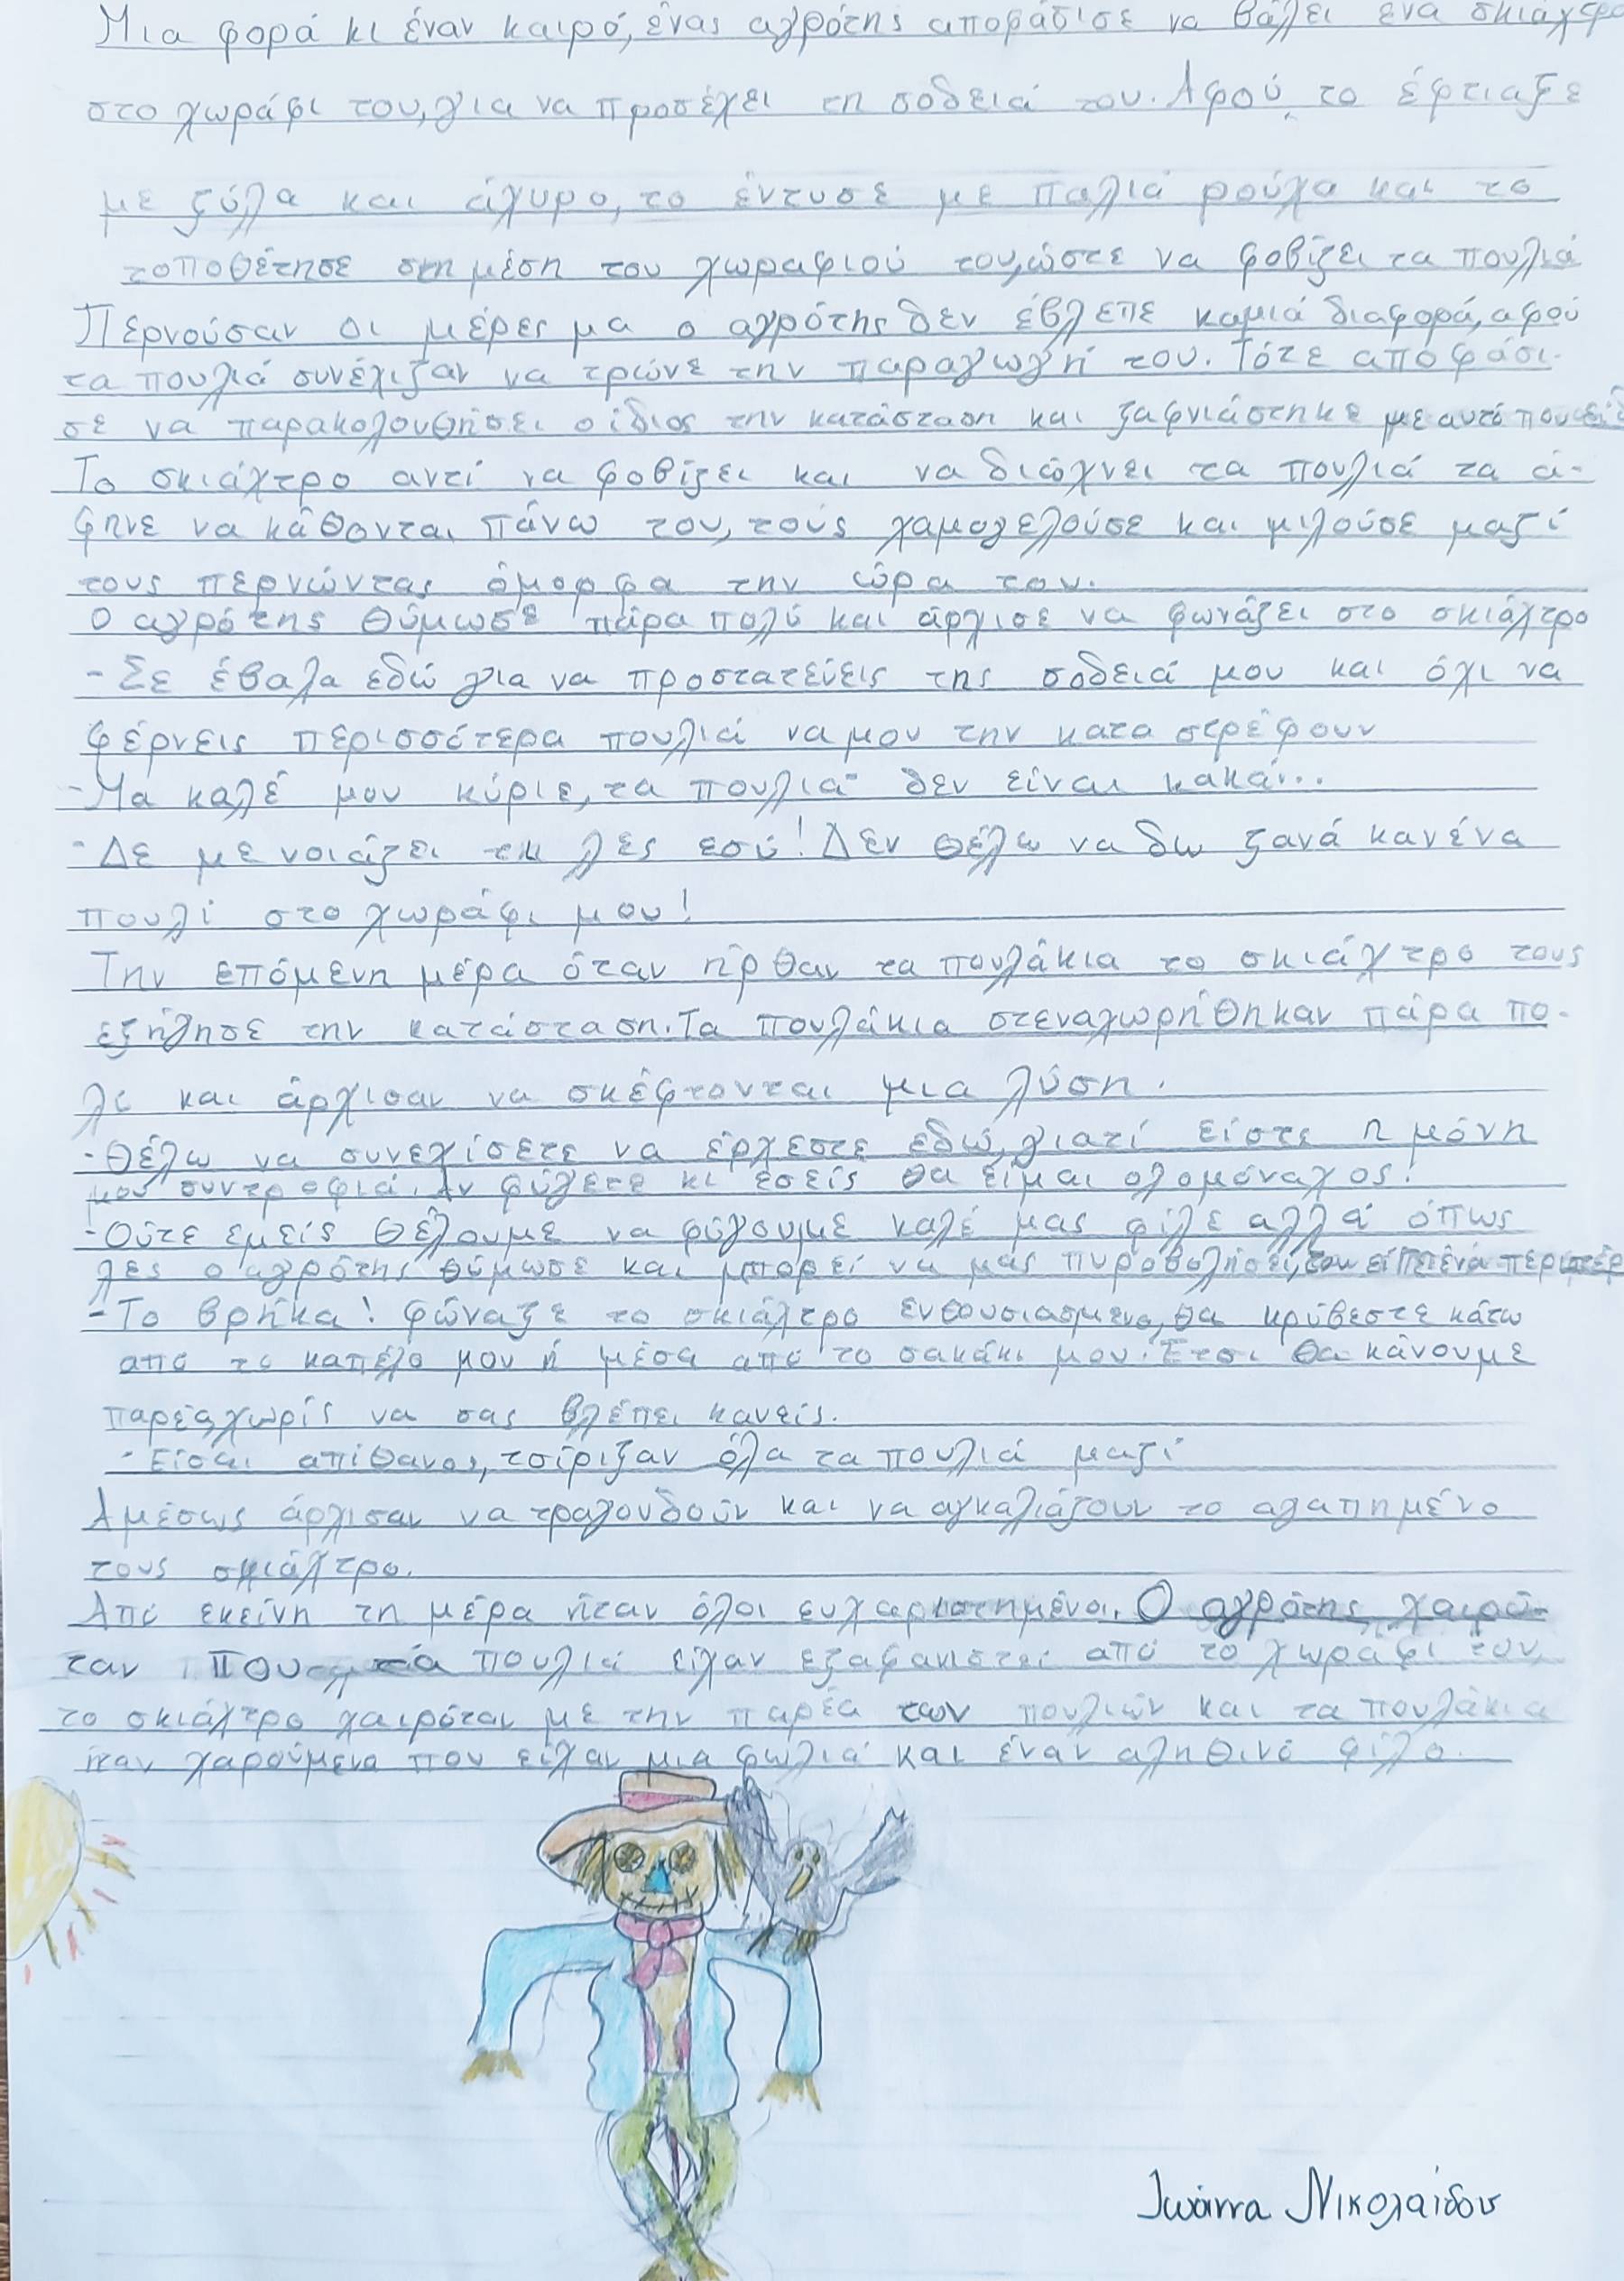 Μια φορά κι έναν καιρό, ένας αγρότης αποφάσισε να βάλει ένα σκιάχτρο
στο χωράφι του, για να προσέχει τη σοδειά του. Αφού το έφτιαξε
με ξύλα και άχυρο, το έντυσε με παλιά ρούχα και το
τοποθέτησε στη μέση του χωραφιού του, ώστε να φοβίζει τα πουλιά
Περνούσαν οι μέρες μα ο αγρότης δεν έβλεπε καμιά διαφορά, αφού
τα πουλιά συνέχιζαν να τρώνε την παραγωγή του. Τότε αποφάσι-
σε να παρακολουθήσει ο ίδιος την κατάσταση και ξαφνιάστηκε με αυτό που είδ
Το σκιάχτρο αντί να φοβίζει και να διώχνει τα πουλιά τα ά-
φηνε να κάθονται πάνω του, τους χαμογελούσε και μιλούσε μαζί
τους περνώντας όμορφα την ώρα του.
Ο αγρότης θύμωσε πάρα πολύ και άρχισε να φωνάζει στο σκιάχτρο
- Σε έβαλα εδώ για να προστατεύεις της σοδειά μου και όχι να
φέρνεις περισσότερα πουλιά να μου την κατα στρέφουν
- Μα καλέ μου κύριε, τα πουλιά δεν είναι κακά...
- Δε με νοιάζει τι λες εσύ! Δεν θέλω να δω ξανά κανένα
πουλί στο χωράφι μου!
Την επόμενη μέρα όταν ήρθαν τα πουλάκια το σκιάχτρο τους
εξήγησε την κατάσταση. Τα πουλάκια στεναχωρήθηκαν πάρα πο-
λύ και άρχισαν να σκέφτονται μια λύση.
- Θέλω να συνεχίσετε να έρχεστε εδώ, γιατί είστε η μόνη
μου συντροφιά. Αν φύγετε κι εσείς θα είμαι ολομόναχος!
- Ούτε εμείς θέλουμε να φύγουμε καλέ μας φίλε αλλά όπως
λες ο αγρότης θύμωσε και μπορεί να μας πυροβολήσει, του είπε ένα περιστέρ
- Το βρήκα! φώναξε το σκιάχτρο ενθουσιασμένο, θα κρύβεστε κάτω
από το καπέλο μου ή μέσα από το σακάκι μου. Έτσι θα κάνουμε
παρέα, χωρίς να σας βλέπει κανείς.
- Είσαι απίθανος, τσίριξαν όλα τα πουλιά μαζί
Αμέσως άρχισαν να τραγουδούν και να αγκαλιάζουν το αγαπημένο
τους σκιάχτρο.
Από εκείνη τη μέρα ήταν όλοι ευχαριστημένοι. Ο αγρότης χαιρό-
ταν που τα πουλιά είχαν εξαφανιστεί από το χωράφι του,
το σκιάχτρο χαιρόταν με την παρέα των πουλιών και τα πουλάκια
ήταν χαρούμενα που είχαν μια φωλιά και έναν αληθινό φίλο.
Ιωάννα Νικολαίδου